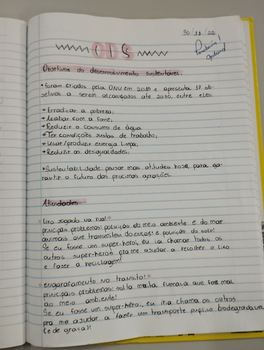 30/11/22
ODS
Objetivos do desenvolvimento sustentável
• Foram criados pela ONU em 2015 e apresenta 17 ob-
jetivos a serem alcançados até 2030, entre eles
• Erradicar a pobreza,
• Acabar com a fome,
• Reduzir o consumo de água
• Ter condições justas de trabalho,
• Usar/produzir energia limpa,
• Reduzir as desigualdades.
• Sustentabilidade: pensar nas atitudes hoje para ga-
rantir o futuro das próximas gerações.
Atividades
Lixo jogado na rua:
principais problemas: poluição do meio ambiente e do mar
animais que transmitem doenças e poluição do solo!
Se eu fosse um super-herói, eu ia chamar todos os
outros super-heróis para me ajudar a recolher o lixo
e fazer a reciclagem!
Engarrafamento no trânsito!
principais problemas: muita fumaça que faz mal
ao meio ambiente!
Se eu fosse um super-herói, eu ia chama os outros
pra me ajudar a fazer um transporte público biodegradável
(e de graça)!